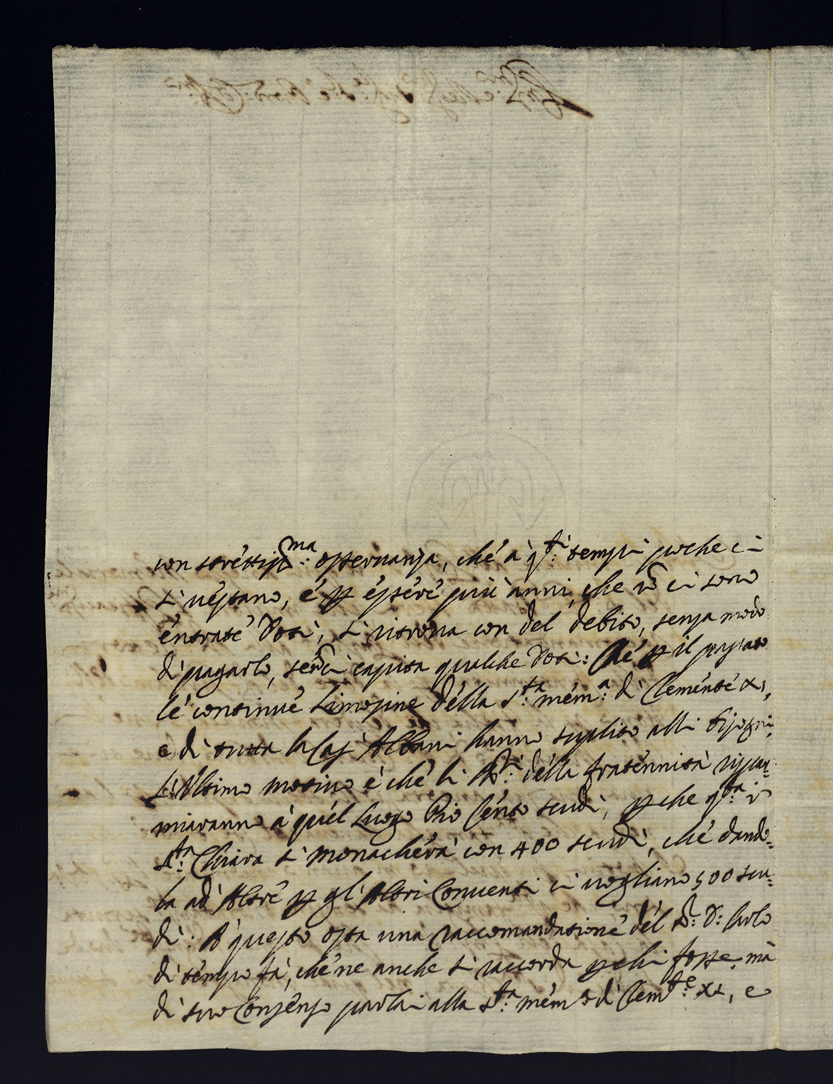 con strettiss.ma osservanza, che à q.ti tempi poche ci
si vestono, e p essere più anni, che nō ci sono
entrate Doti, si ritrova con del debito, senza modo
di pagarlo, se nō ci capita qualche Dote: Ne p il passato
le continue Limosine della S.ta mem.a di Clemente XI,
e di tutta la Casa Albani hanno suplito alli bisogni.
L'Ultimo motivo è che li SS.ri della fraternità rispar=
miaranno à quel Luogo Pio Cento scudi, p che q.sta in
S.ta Chiara si monacherà con 400 scudi, che dando=
la ad Altre p gl'Altri Conventi ci vogliano 500 scu=
di: A questo osta una raccomandatione del S.r D: Carlo
di tempo fà, che ne anche si raccorda p chi fosse, mà
di suo Consenso parlai alla S.ta mem.a di Clem.te XI, e